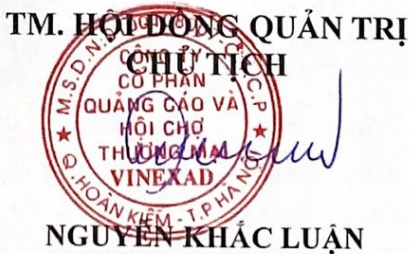 TM. HỘI ĐỒNG QUẢN TRỊ
CHỦ TỊCH
M.S.D.N:
C.T.C.P
CÔNG TY
CỔ PHẦN
QUẢNG CÁO VÀ
HỘI CHỢ
THƯƠNG MẠI
VINEXAD
Q. HOÀN KIẾM - T.P HÀ NỘI
NGUYỄN KHẮC LUẬN